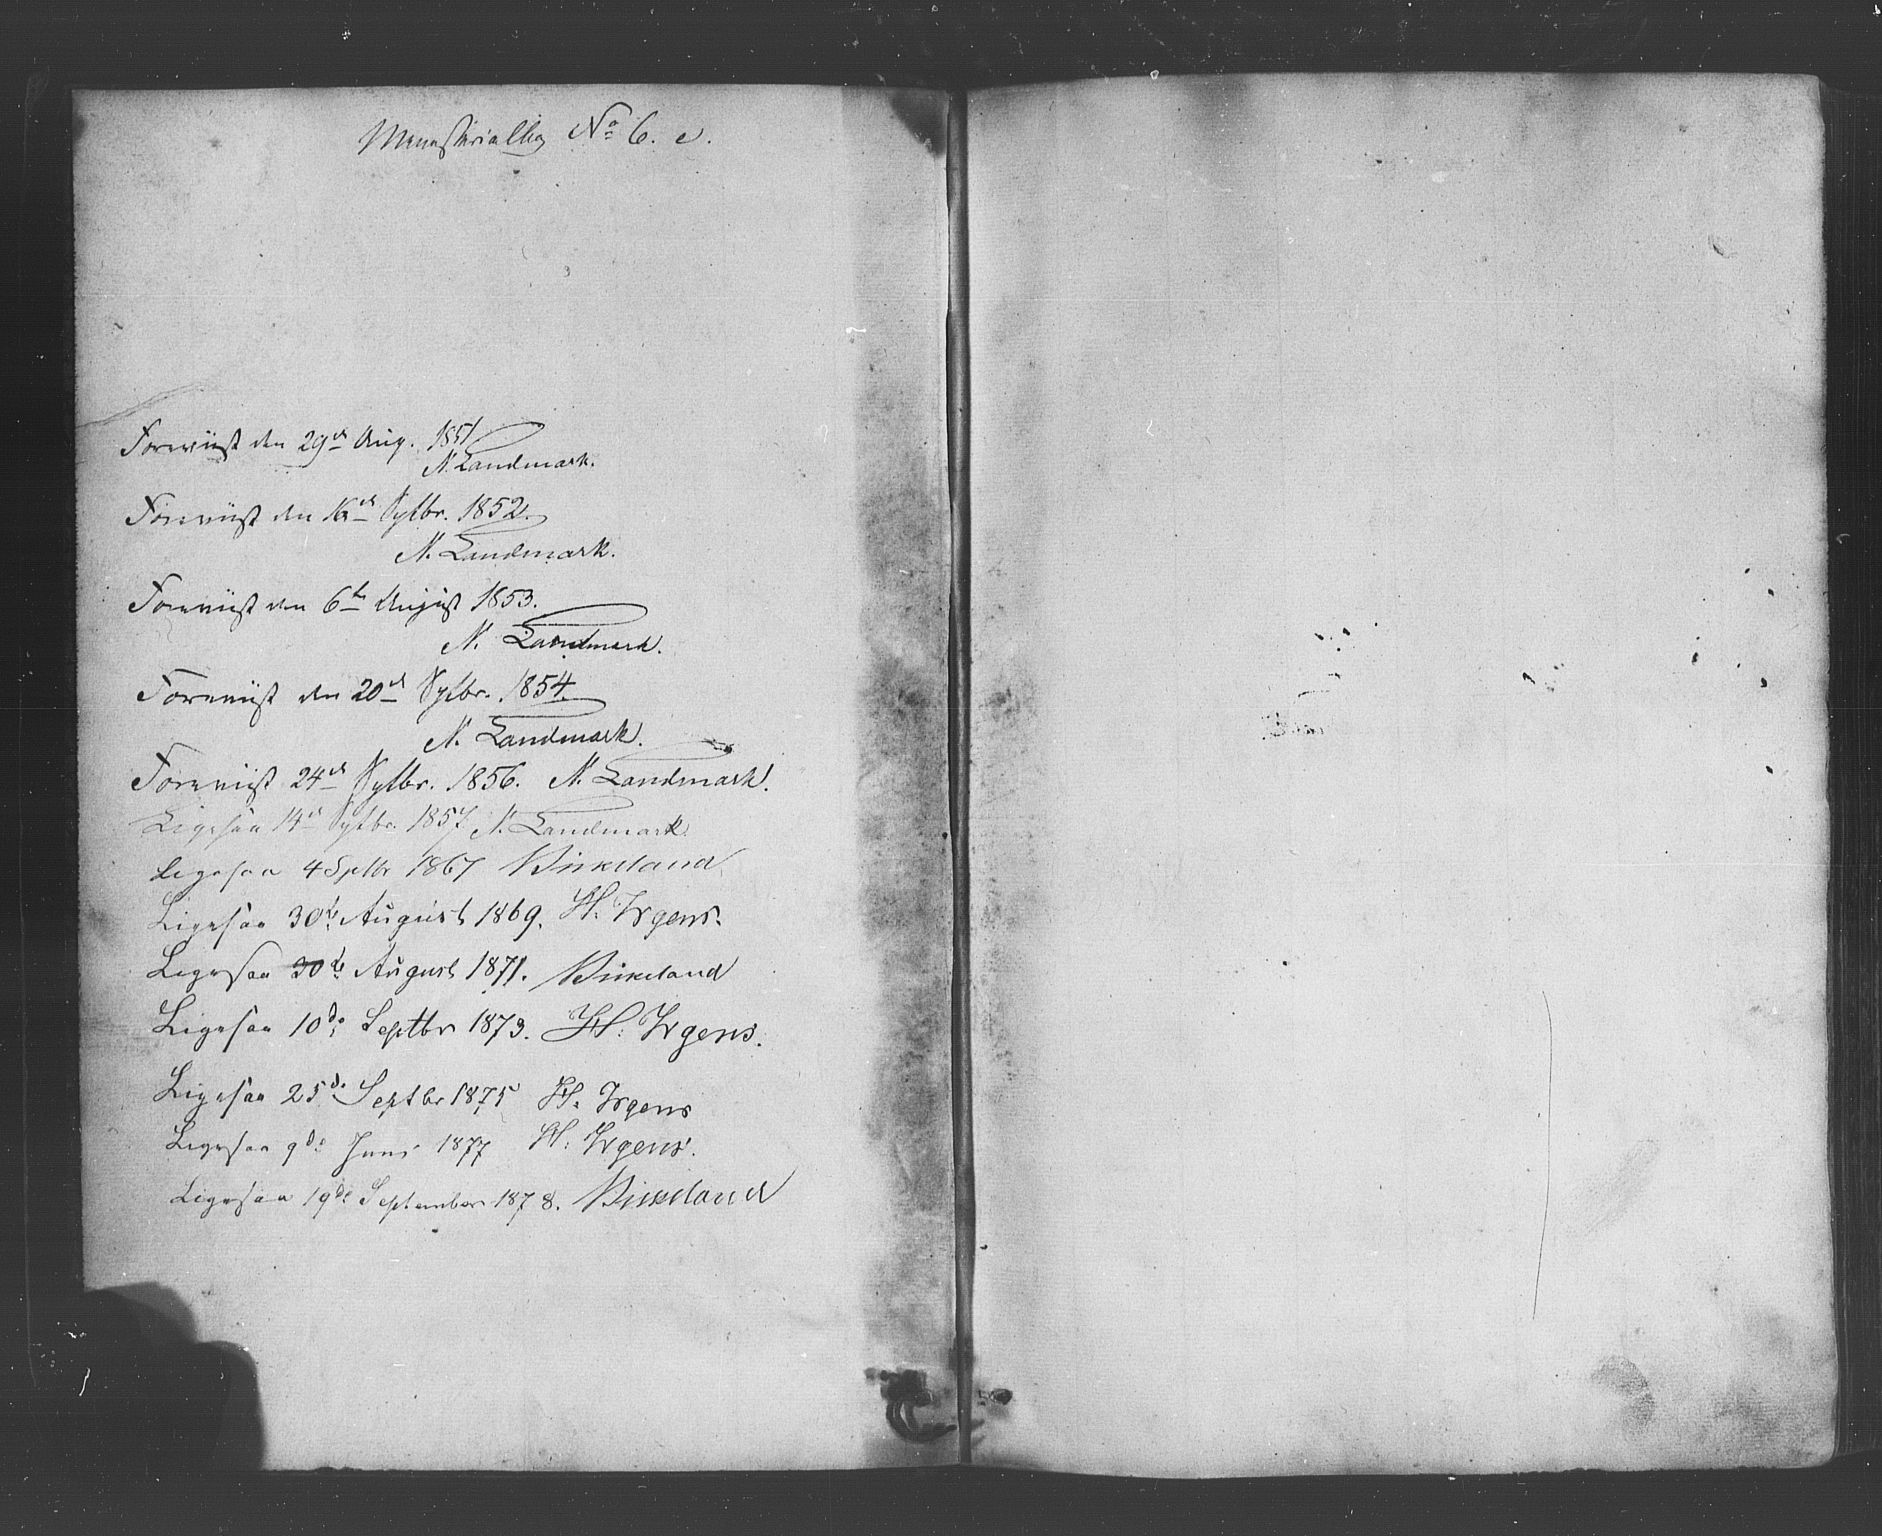 Ministerialbog No 6. c.
Foreviist den 29de Aug. 1851
N. Landmark.
Foreviist den 16de Septbr. 1852.
N. Landmark.
Foreviist den 6te August 1853.
N. Landmark.
Foreviist den 20de Septbr. 1854.
N. Landmark.
Foreviist 24de Septbr. 1856. N. Landmark.
Ligesaa 14de Septbr. 1857 N. Landmark.
Ligesaa 4 Septbr 1867 Birkeland
Ligesaa 30te August 1869. H. Irgens.
Ligesaa 30te August 1871. Birkeland
Ligesaa 10de Septbr 1873. H. Irgens.
Ligesaa 25de Septbr 1875 H. Irgens
Ligesaa 9de Juni 1877 H. Irgens.
Ligesaa 19de September 1878. Birkeland